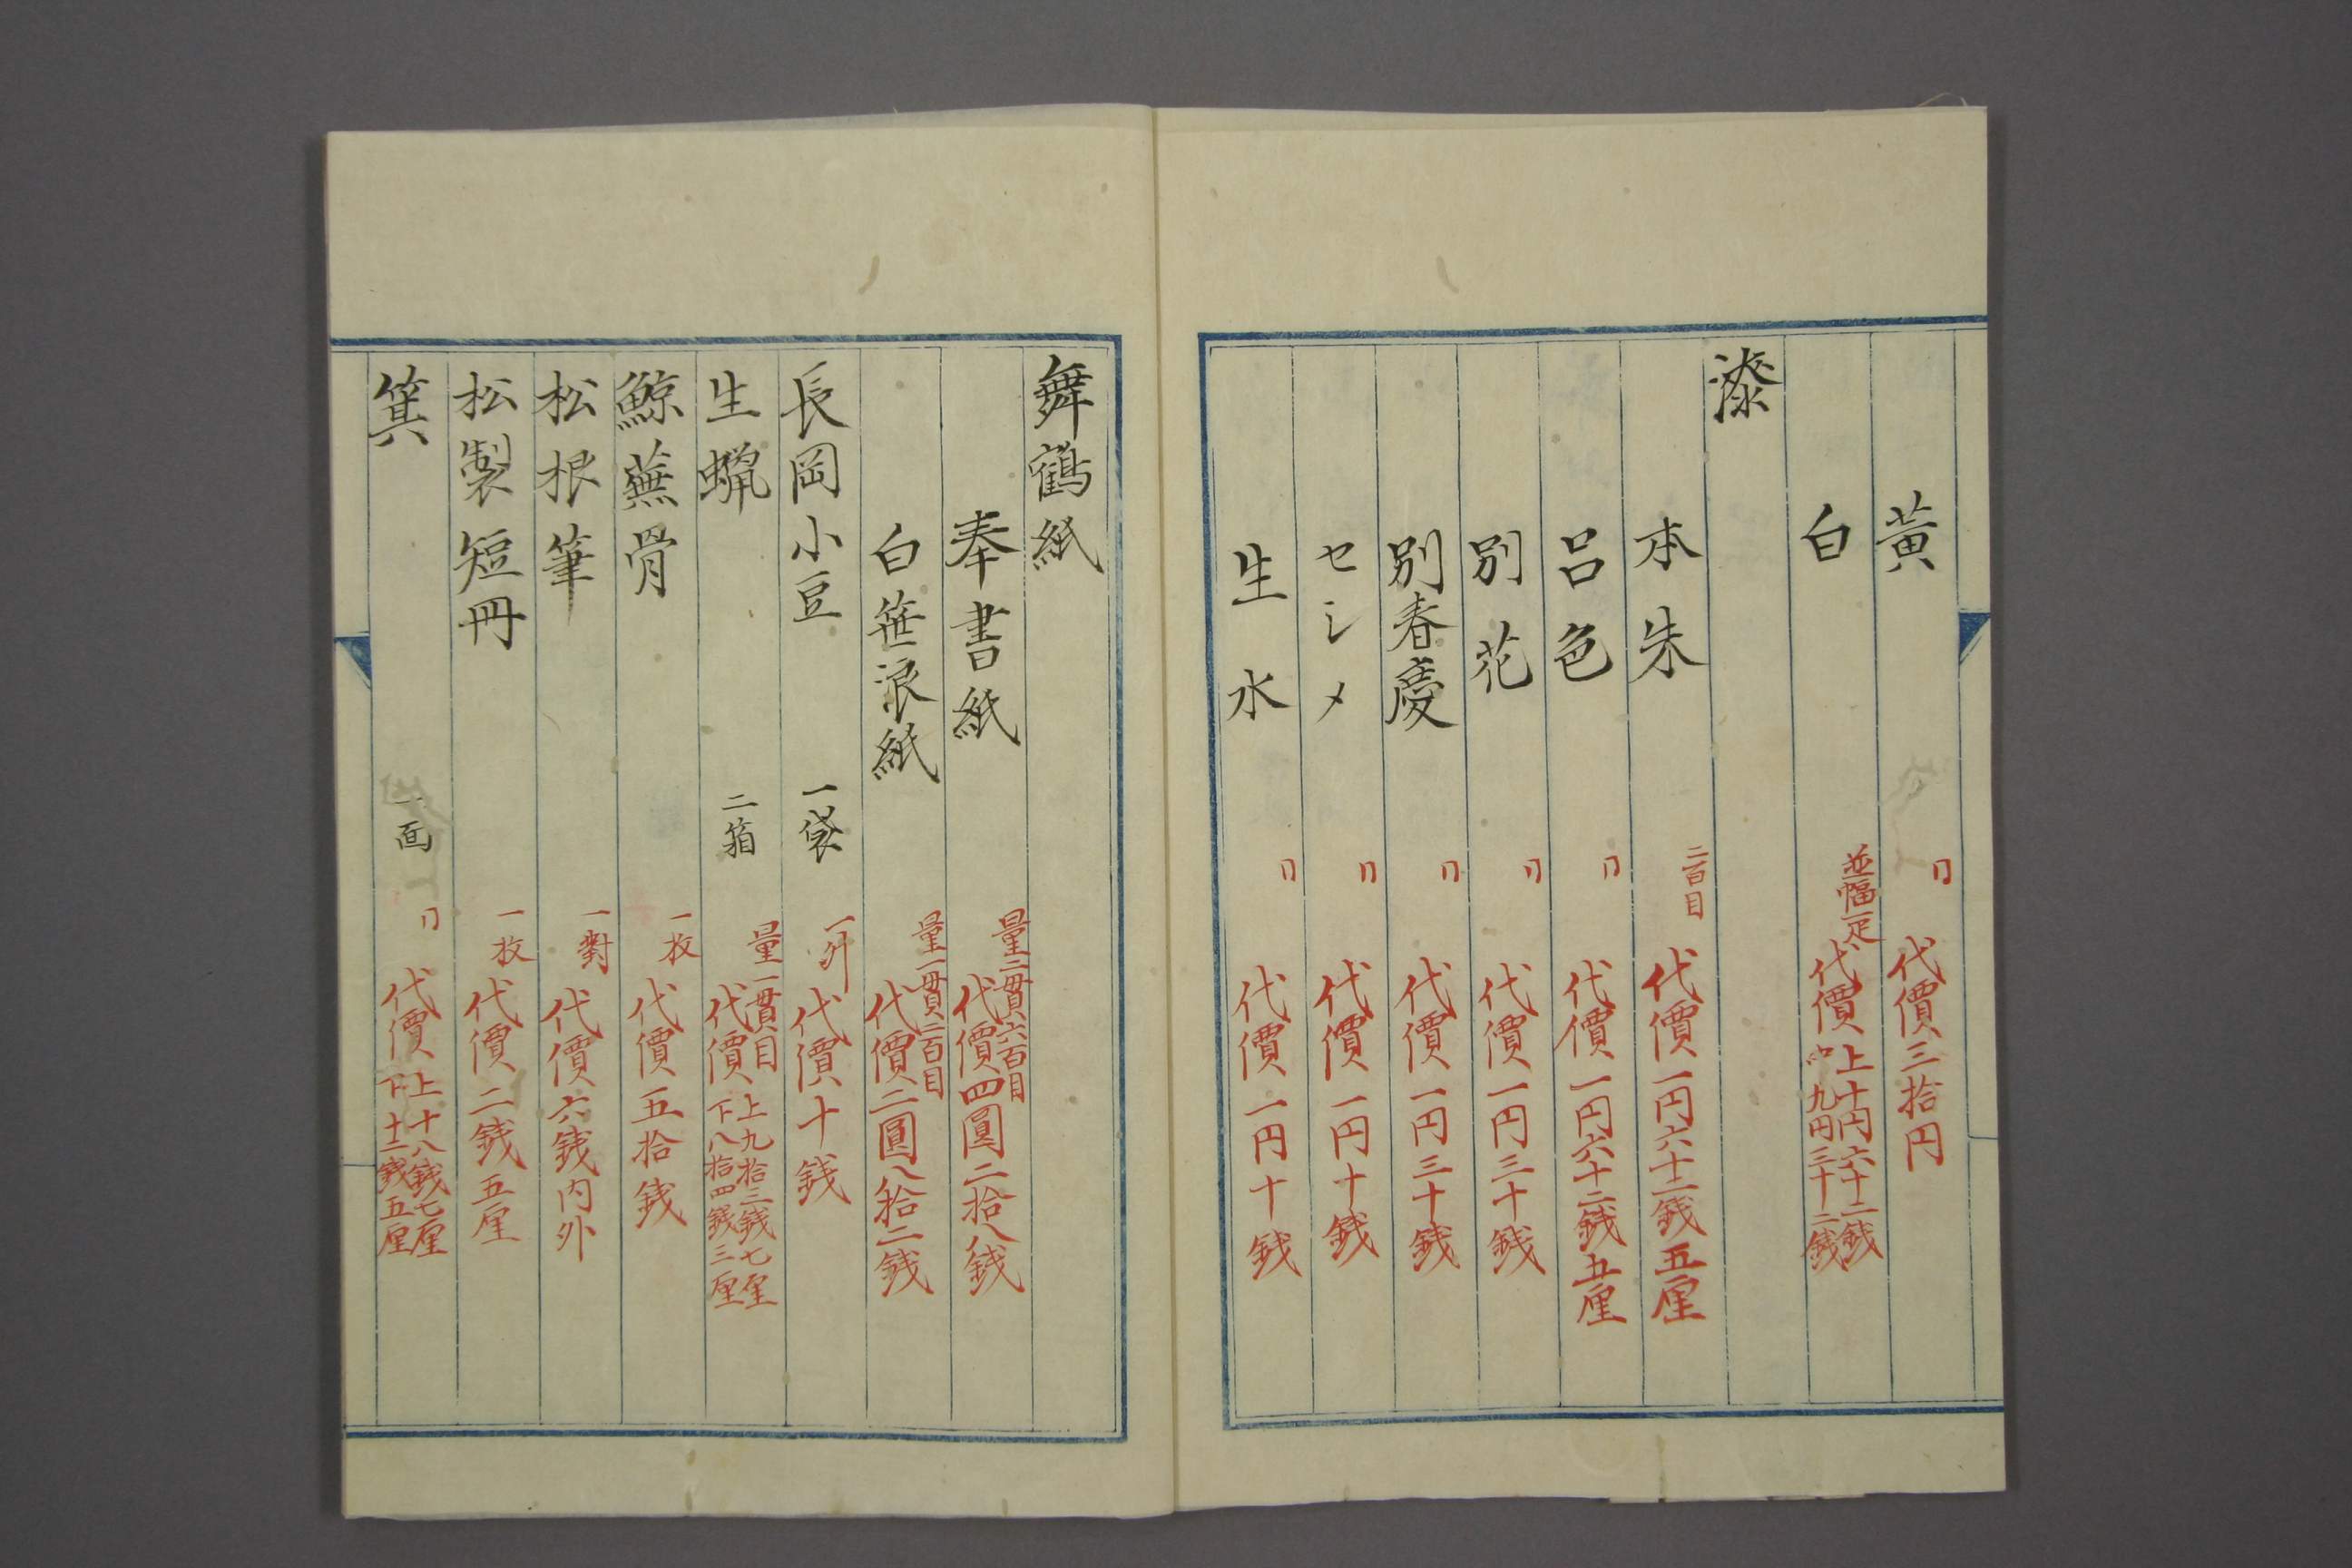 黄 〃 代價三拾円
白 並幅一疋 代價 上十円六十二銭 中九円三十二銭
漆
本朱 二百目 代價一円六十二銭五厘
呂色 〃 代價一円六十二銭五厘
別花 〃 代價一円三十銭
別春慶 〃 代價一円三十銭
セシメ 〃 代價一円十銭
生水 〃 代價一円十銭
舞鶴紙
奉書紙 量二貫六百目 代價四圓二拾八銭
白笹浪紙 量一貫三百目 代價二圓八拾二銭
長岡小豆 一袋 一升 代價十銭
生蝋 二箱 量一貫目 代價 上九拾三銭七厘 下八拾四銭三厘
鯨蕪骨 一枚 代價五拾銭
松根筆 一對 代價六銭内外
松製短冊 一枚 代價二銭五厘
箕 一面 〃 代價 上十八銭七厘 下十二銭五厘